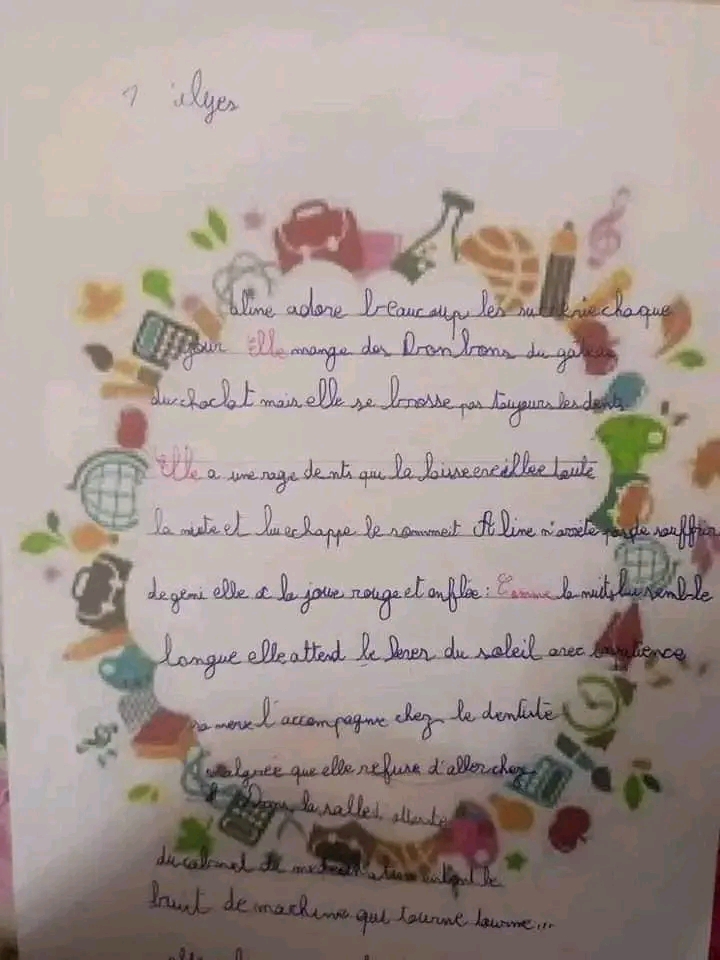 ilyes
aline adore beaucoup les sucrerie chaque
jour Elle mange des bonbons du gateau
du choclat mais elle se brosse pas toujours les dents.
Elle a une rage dents qui la laisse eveillee toute
la nuit et lui echappe le sommeil Aline n'arrête pas de souffrir
de gemi elle a la joue rouge et enflée: Comme la nuits lui semble
longue elle attend le lever du soleil avec impatience
sa mere l'accompagne chez le dentiste
malgrée que elle refuse d'aller chez
Dans la salle d attente
du cabinet de medecin aline entent le
bruit de machine qui tourne tourne...